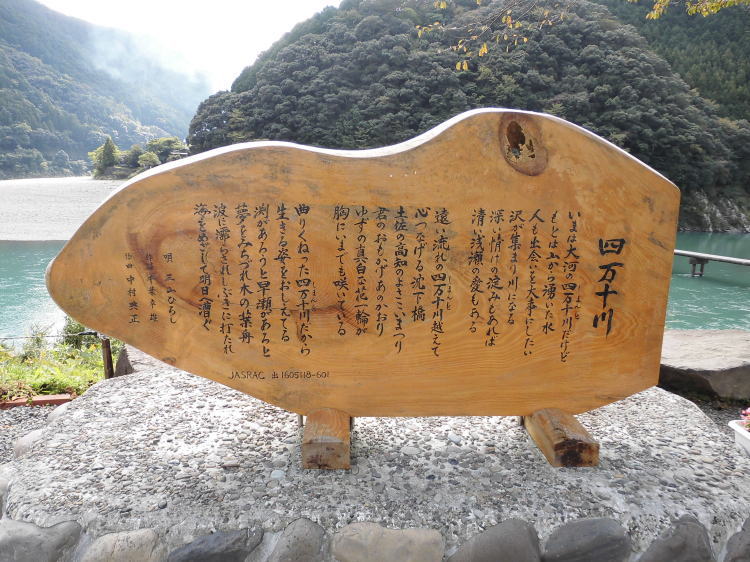 四万十川
いまは大河の四万十川だけど
しまんと
もとは山から湧いた水
人も出会いを大事にしたい
沢が集まり川になる
深い情けの淀みもあれば
清い浅瀬の愛もある
遠い流れの四万十川越えて
しまんと
心つなげる沈下橋
土佐の高知のよさこいまつり
君のおもかげあのかおり
ゆずの真白な花一輪が
胸にいまでも咲いている
曲りくねった四万十川だから
しまんと
生きる姿をおしえてる
渕があろうと早瀬があろと
夢をみちづれ木の葉舟
波に濡らされしぶきに打たれ
海をめざして明日へ漕ぐ
唄 三山ひろし
作詞 千葉幸雄
作曲 中村典正
JASRAC 出1605118-601